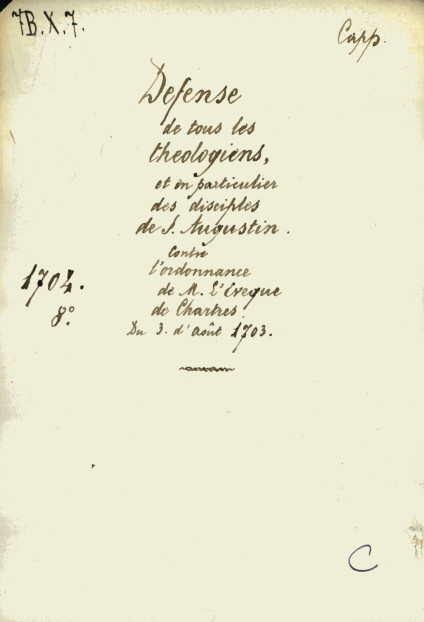 7B.X.7.
Capp.
Defense
de tous les
theologiens,
et en particulier
des disciples
de S. Augustin.
Contre
l'ordonnance
de M. L'Eveque
de Chartres
Du 3. d'Août 1703.
1704.
8°
C